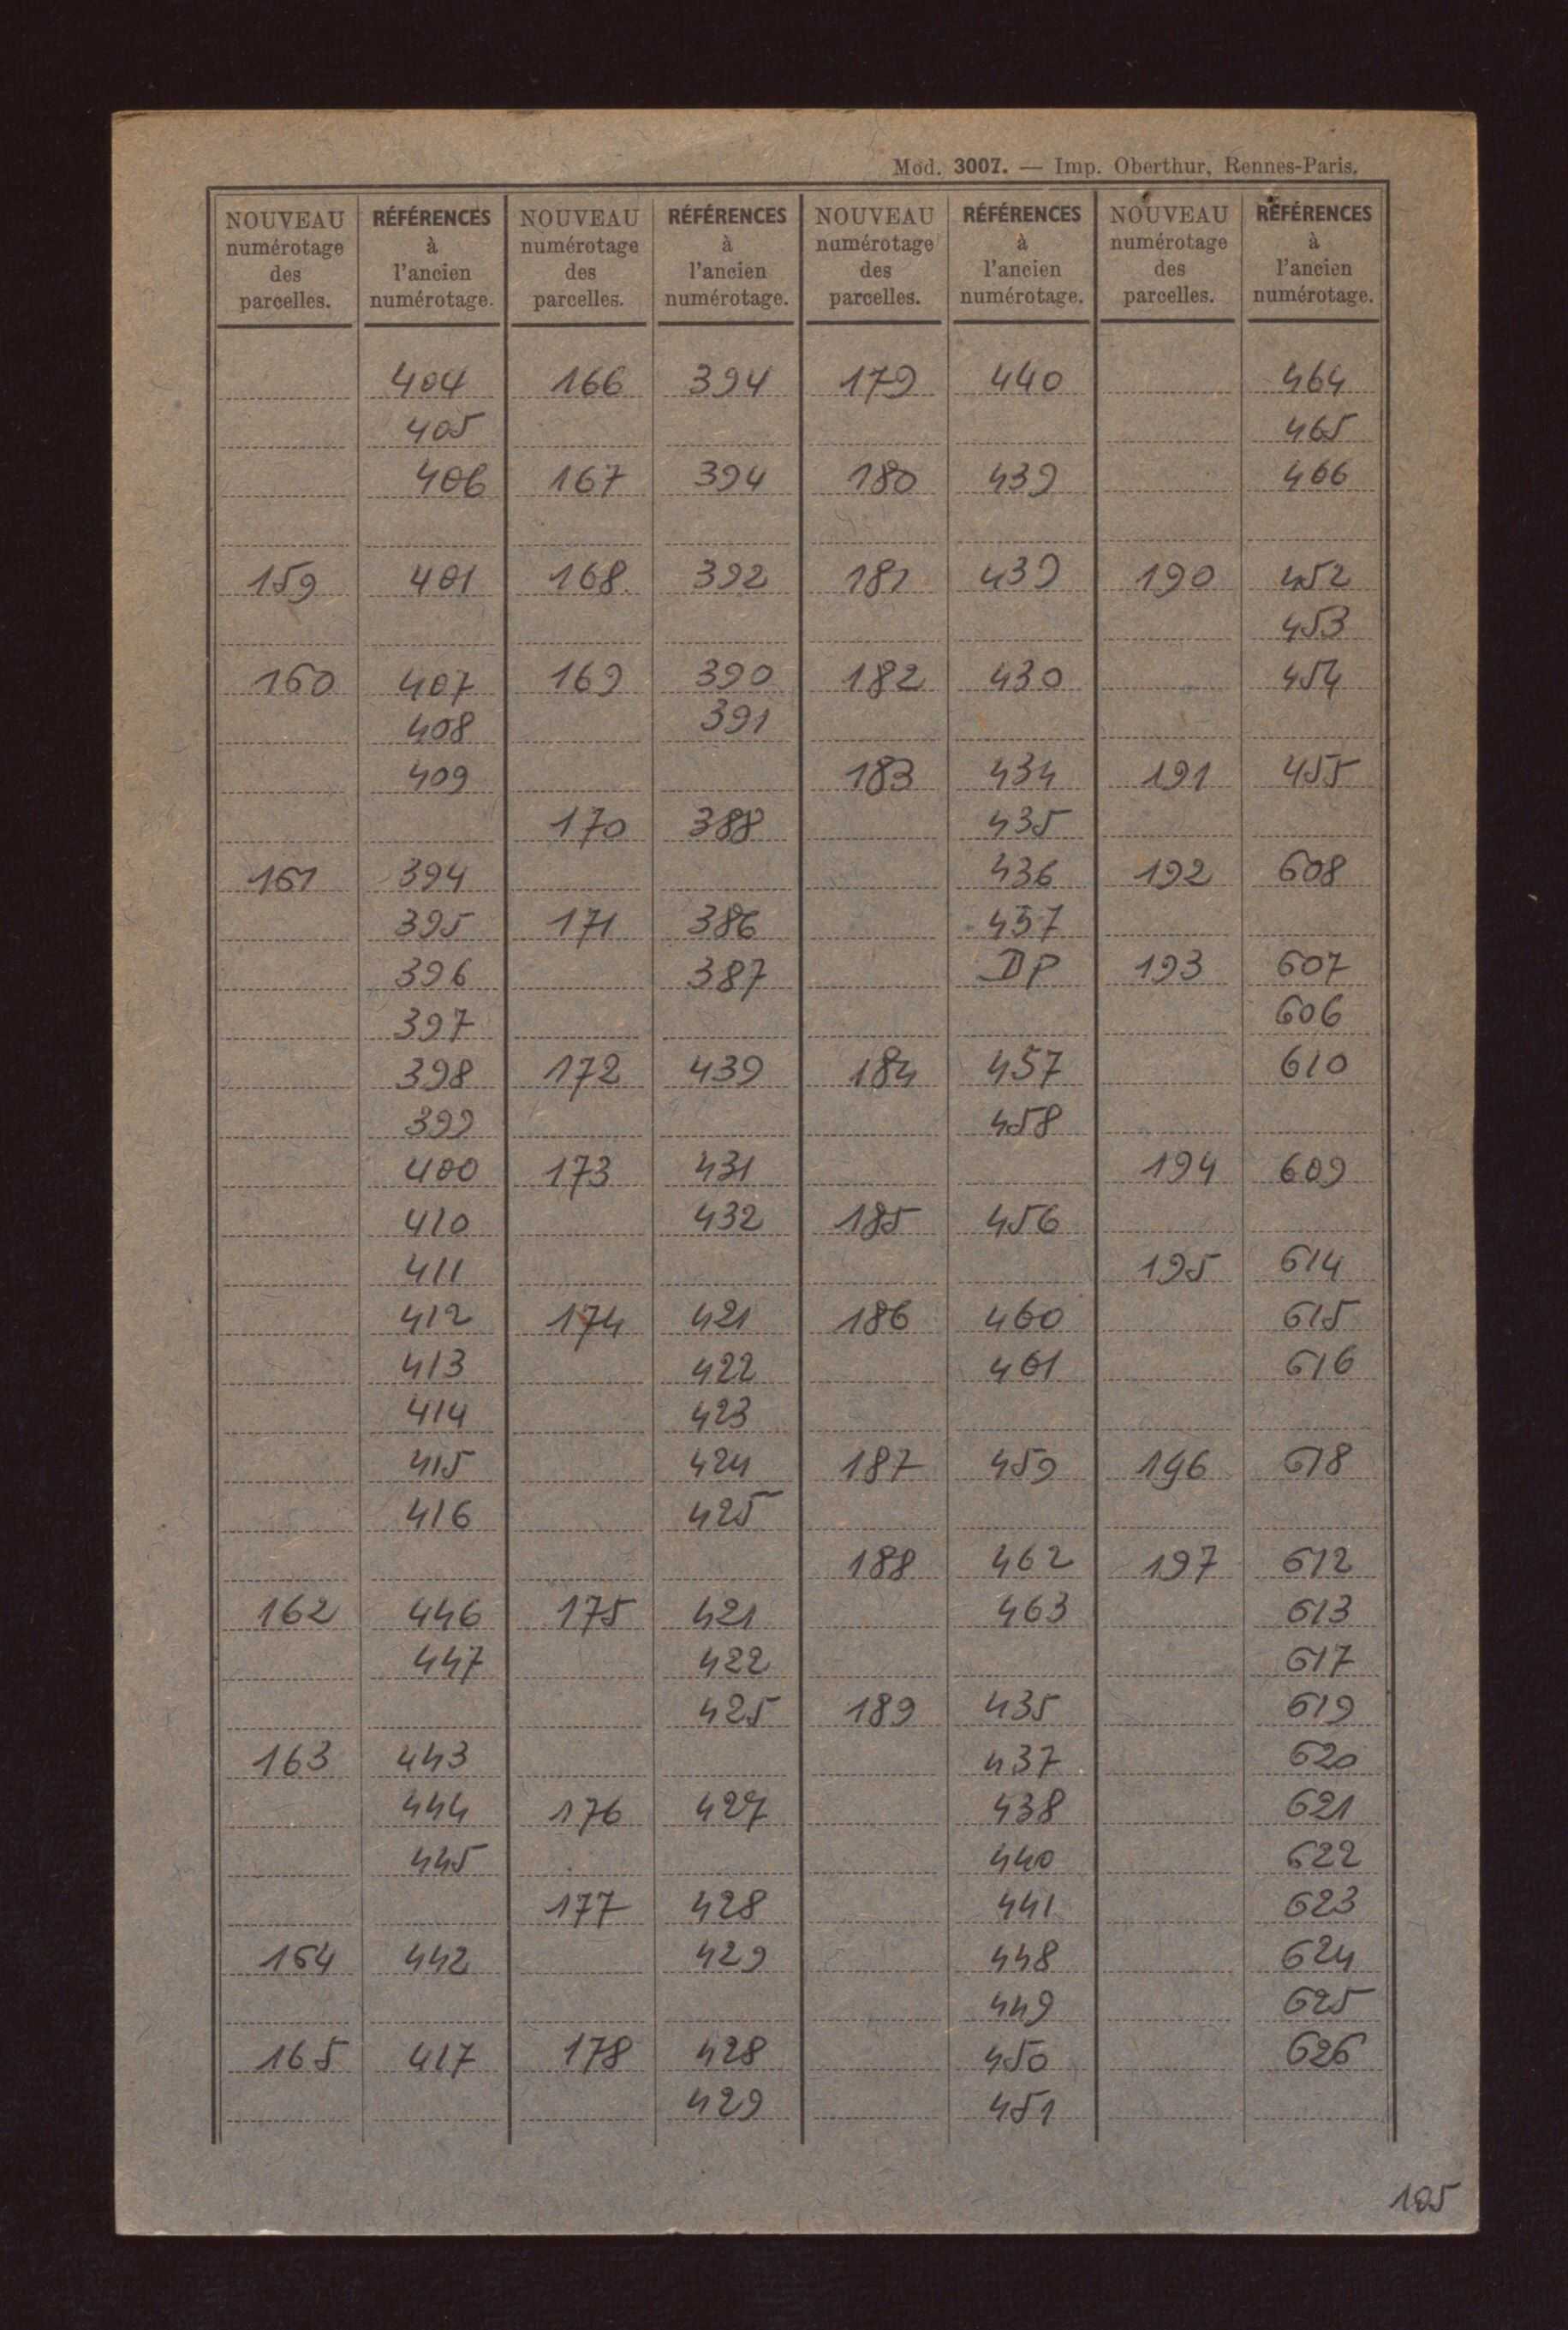 Mod. 3007. — Imp. Oberthur, Rennes-Paris.
NOUVEAU numérotage des parcelles. RÉFÉRENCES à l'ancien numérotage. NOUVEAU numérotage des parcelles. RÉFÉRENCES à l'ancien numérotage. NOUVEAU numérotage des parcelles. RÉFÉRENCES à l'ancien numérotage. NOUVEAU numérotage des parcelles. RÉFÉRENCES à l'ancien numérotage.
404 166 394 179 440 464
405 465
406 167 394 180 439 466
159 401 168 392 181 439 190 452
453
160 407 169 390 182 430 454
408 391
409 183 434 191 455
170 388 435
161 394 436 192 608
395 171 386 437
396 387 DP 193 607
397 606
398 172 439 184 457 610
399 458
400 173 431 194 609
410 432 185 456
411 195 614
412 174 421 186 460 615
413 422 461 616
414 423
415 424 187 459 196 618
416 425
188 462 197 612
162 446 175 421 463 613
447 422 617
425 189 435 619
163 443 437 620
444 176 427 438 621
445 440 622
177 428 441 623
164 442 429 448 624
449 625
165 417 178 428 450 626
429 451
105